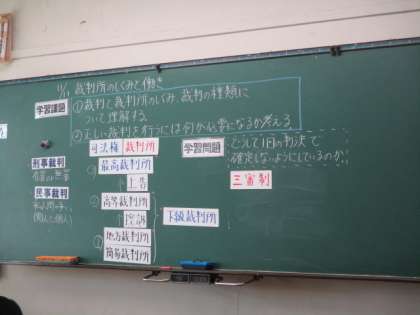 11/11 裁判所のしくみと働き
学習課題
①裁判と裁判所のしくみ、裁判の種類に
ついて理解する
②正しい裁判を行うには何が必要になるか考える
司法権 裁判所
学習問題
どうして1回の判決で
確定しないようにしているのか
刑事裁判
有罪or無罪
民事裁判
私人間の争い
個人と個人
③ 最高裁判所
↑上告
② 高等裁判所
↑控訴
① 地方裁判所
簡易裁判所
下級裁判所
三審制